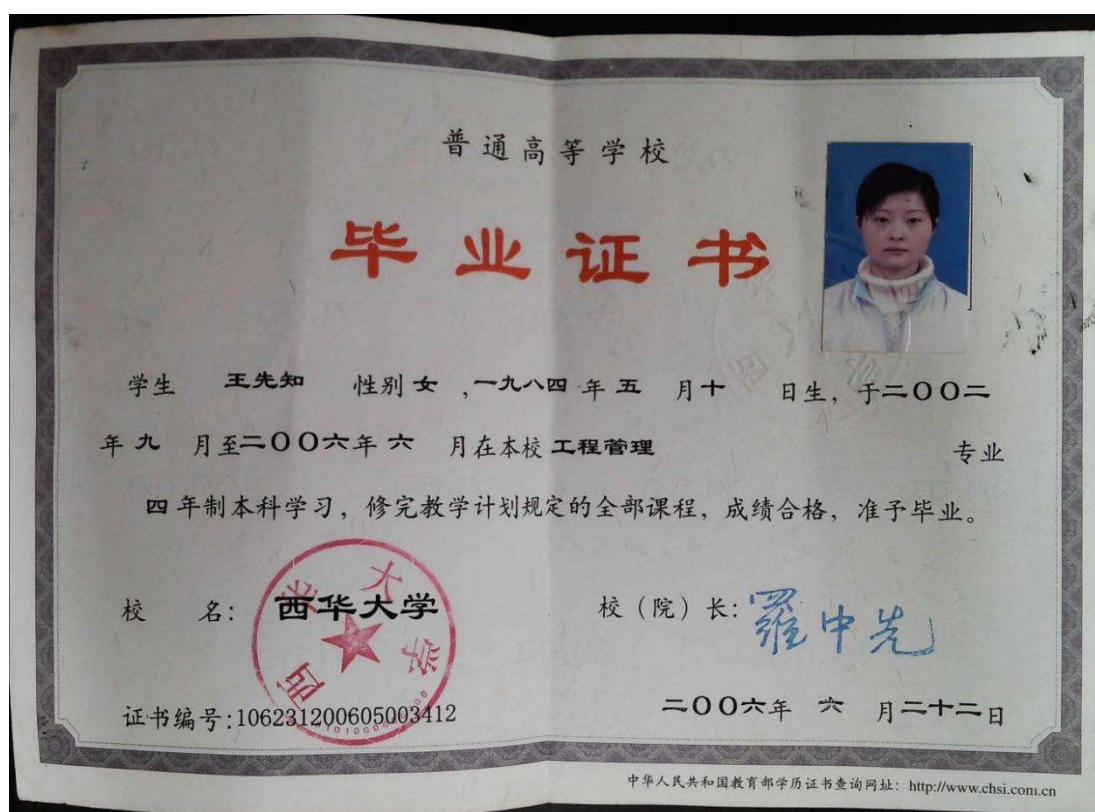 普通高等学校
毕业证书
学生 王先知 性别 女 ，一九八四 年 五 月 十 日生，于二〇〇二
年 九 月至二〇〇六年 六 月在本校 工程管理 专业
四 年制本科学习，修完教学计划规定的全部课程，成绩合格，准予毕业。
校 名： 西华大学 校（院）长：羅中先
西华大学
证书编号:106231200605003412 二〇〇六年 六 月二十二日
中华人民共和国教育部学历证书查询网址：http://www.chsi.com.cn